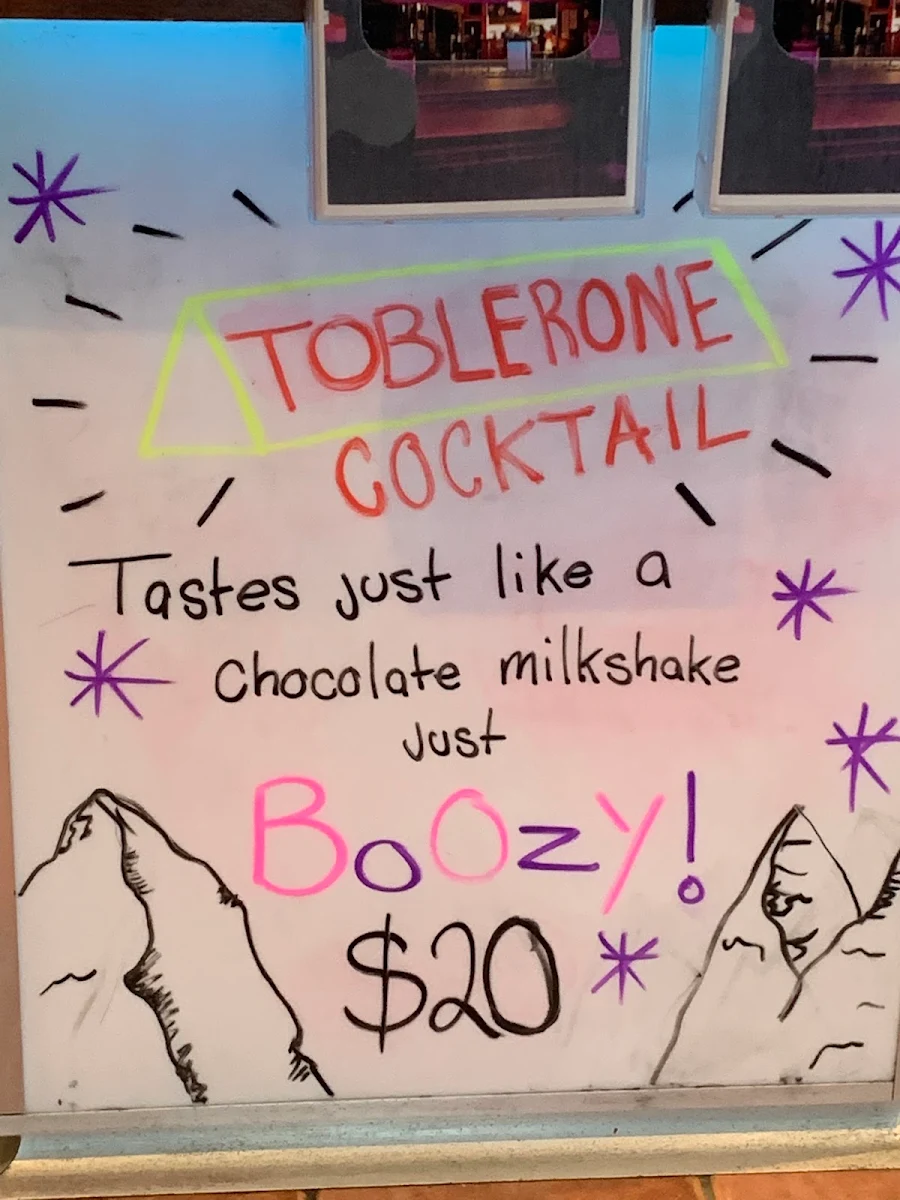 TOBLERONE
COCKTAIL
Tastes just like a
chocolate milkshake
just
BoOzy!
$20